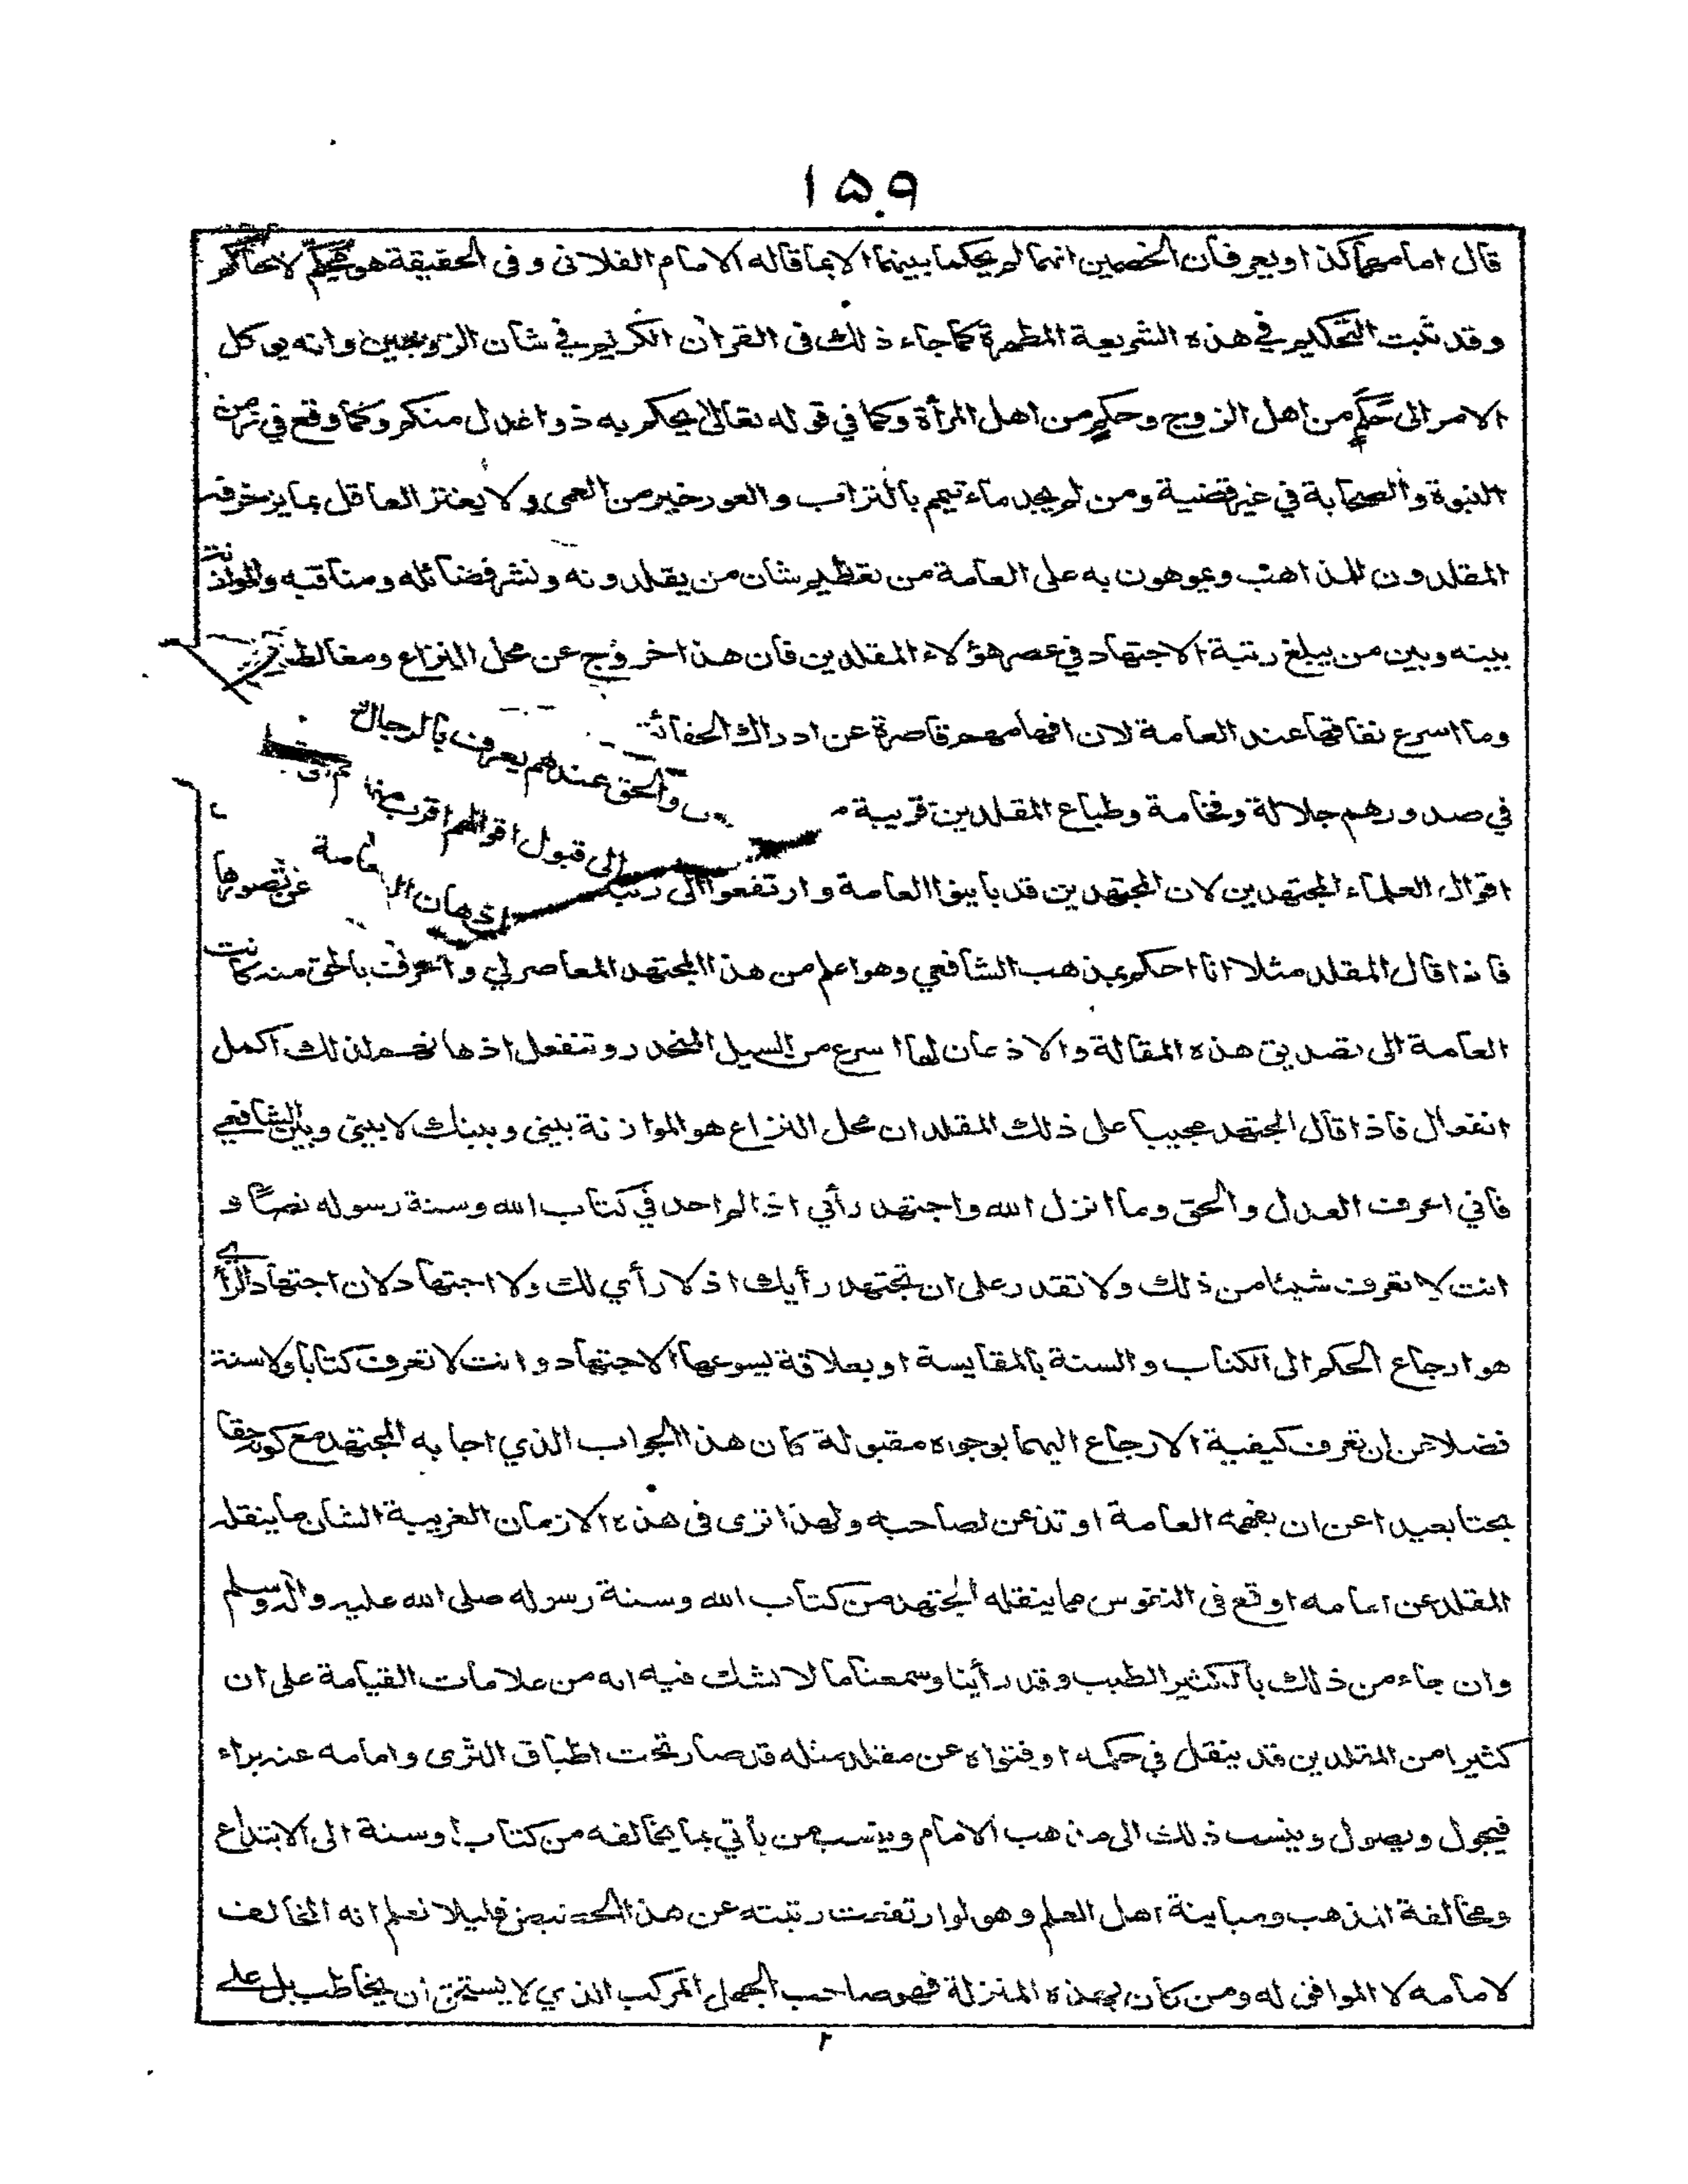 ١٥٩
قال امامهما كذا ويعرفان الخصمين انهما لم يحكما بينهما الا بما قاله الامام الفلانى وفى الحقيقة هو محكم لا حاكم
وقد ثبت التحكيم في هذه الشريعة المطهرة كما جاء ذلك فى القرآن الكريم في شان الزوجين وانه يوكل
الامر الى حكم من اهل الزوج وحكم من اهل المرأة وكما في قوله تعالى يحكم به ذوا عدل منكم وكما وقع في زمن
النبوة والصحابة في غير قضية ومن لم يجد ماء تيمم بالتراب والعور خير من العمى ولا يغتر العاقل بما يزخرفه
المقلدون للمذاهب ويموهون به على العامة من تعظيم شان من يقلدونه ونشر فضائله ومناقبه والموازنة
بينه وبين من يبلغ رتبة الاجتهاد في عصر هؤلاء المقلدين فان هذا خروج عن محل النزاع ومغالطة
وما اسرع نفاقها عند العامة لان افهامهم قاصرة عن ادراك الحقائق والحق عندهم يعرف بالرجال
في صدورهم جلالة وفخامة وطباع المقلدين قريبة الى قبول اقوالهم اقرب منها
اقوال العلماء المجتهدين لان المجتهدين قد باينوا العامة وارتفعوا الى رتبة اذهان العامة عن تصورها
فاذا قال المقلد مثلا انا احكم بمذهب الشافعي وهو اعلم من هذا المجتهد المعاصر لي واعرف بالحق منه كانت
العامة الى تصديق هذه المقالة والاذعان لها اسرع من السيل المنحدر وتنفعل اذهانهم لذلك اكمل
انفعال فاذا قال المجتهد مجيبا على ذلك المقلد ان محل النزاع هو الموازنة بيني وبينك لا بيني وبين الشافعي
فاني اعرف العدل والحق وما انزل الله واجتهد رأيي اذا لم اجد في كتاب الله وسنة رسوله نصا و
انت لا تعرف شيئا من ذلك ولا تقدر على ان تجتهد رأيك اذ لا رأي لك ولا اجتهاد لان اجتهاد الرأي
هو ارجاع الحكم الى الكتاب والسنة بالمقايسة او بعلاقة يسوغها الاجتهاد وانت لا تعرف كتابا ولا سنة
فضلا عن ان تعرف كيفية الارجاع اليهما بوجوه مقبولة كان هذا الجواب الذي اجا به المجتهد مع كونه حقا
بحتا بعيدا عن ان يفهمه العامة او تذعن لصاحبه ولهذا ترى فى هذه الازمان الغريبة الشان ما ينقله
المقلد عن امامه اوقع فى النفوس مما ينقله المجتهد من كتاب الله وسنة رسوله صلى الله عليه واله وسلم
وان جاء من ذلك بالكثير الطيب وقد رأينا وسمعنا ما لا نشك فيه انه من علامات القيامة على ان
كثيرا من المقلدين قد ينقل في حكمه او فتواه عن مقلد مثله قد صار تحت اطباق الثرى وامامه عنه براء
فيجول ويصول وينسب ذلك الى مذهب الامام وينسب من يأتي بما يخالفه من كتاب او سنة الى الابتداع
ومخالفة المذهب ومباينة اهل العلم وهو لو ارتفعت رتبته عن هذا الحضيض قليلا لعلم انه المخالف
لامامه لا الموافق له ومن كان بهذه المنزلة فهو صاحب الجهل المركب الذي لا يستحق ان يخاطب بل على
٢